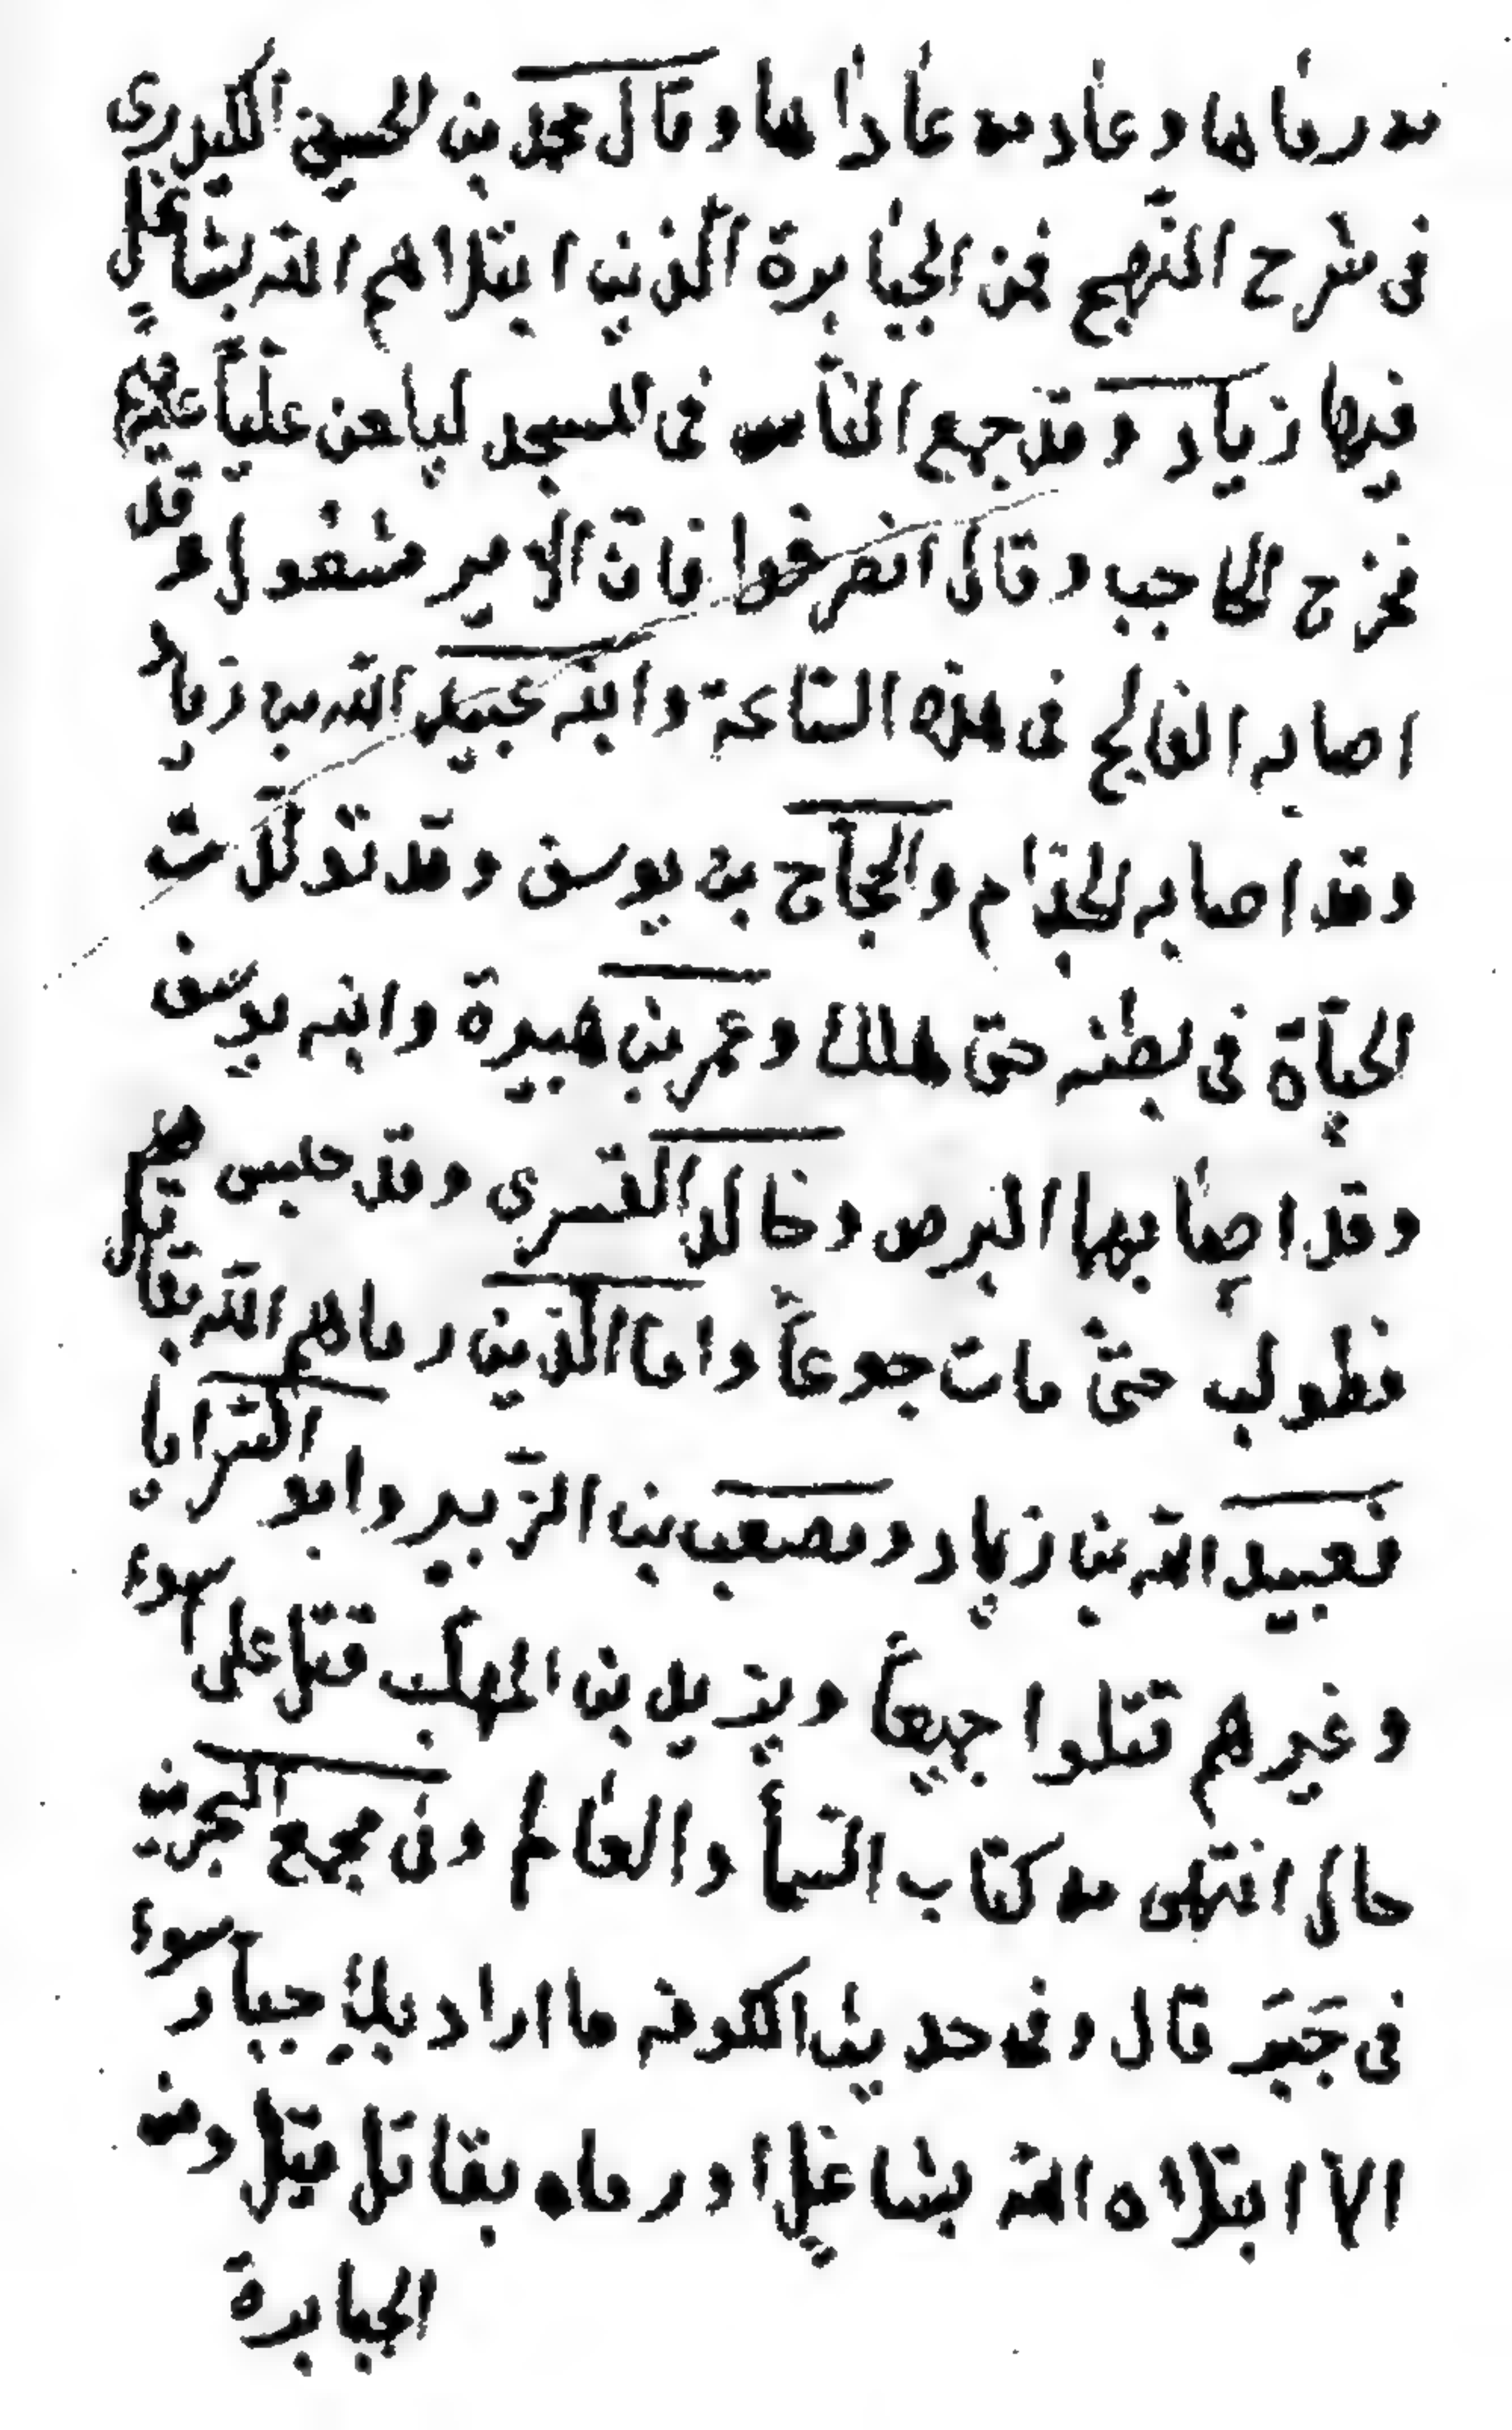 من رماها وعاد من عاداها وقال محمد بن الحسين الكيدرى
فى شرح النّهج فمن الجبابرة الّذين ابتلاهم الله بشاغل
فيها زياد وقد جمع الناس فى المسجد ليلعن عليّاً
فخرج الحاجب وقال انصرفوا فانّ الامير مشغول وقد
اصابه الفالج فى هذه السّاعة وابنه عبيد الله بن زياد
وقد اصابه الجذام والحجّاج بن يوسف وقد تولّدت
الحيّاة فى بطنه حتّى هلك وعمر بن هبيرة وابنه يوسف
وقد اصابهما البرص وخالد القسرى وقد حبس
فطولب حتّى مات جوعاً واما الّذين رماهم الله بقاتل
فعبيد الله بن زياد ومصعب بن الزّبير وابو السّرايا
وغيرهم قتلوا جميعاً ويزيد بن المهلّب قتل على اسوء
حال انتهى من كتاب السّمأ والعالم وفى مجمع البحرين
فى جَبَرَ قال وفى حديث الكوفه ما اراد بكِ جبّار سوء
الّا ابتلاه الله بشاغل او رماه بقاتل قيل ومن
الجبابرة